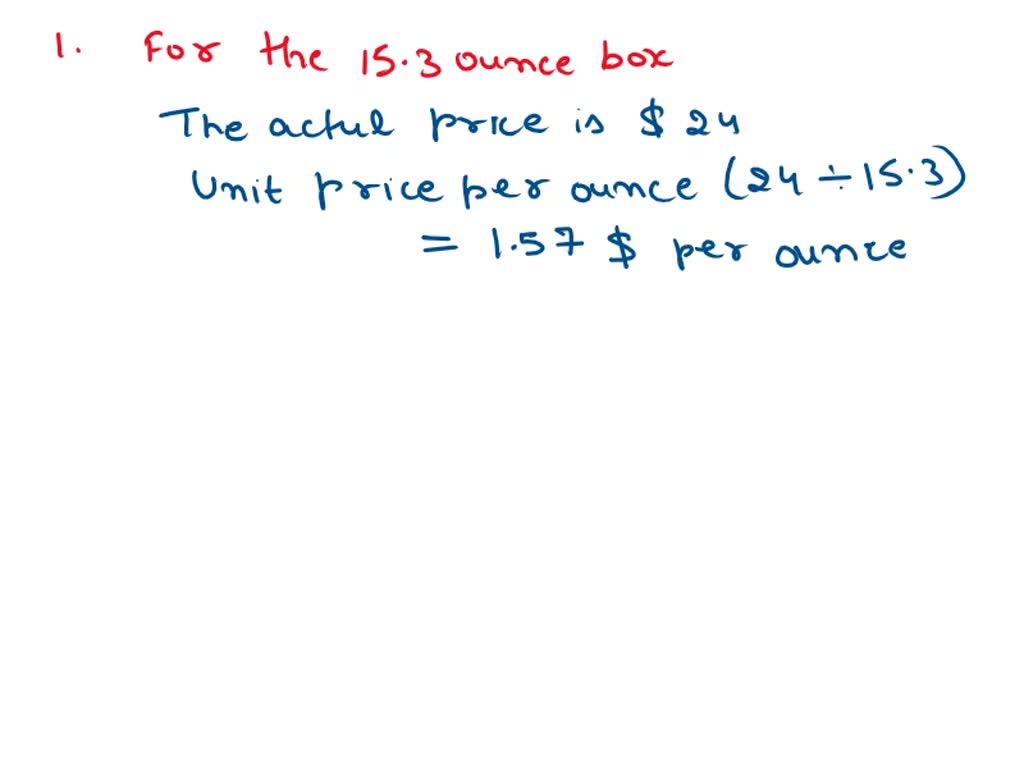 1. For the 15.3 ounce box
The actul price is $ 24
Unit price per ounce (24 ÷ 15.3)
= 1.57 $ per ounce